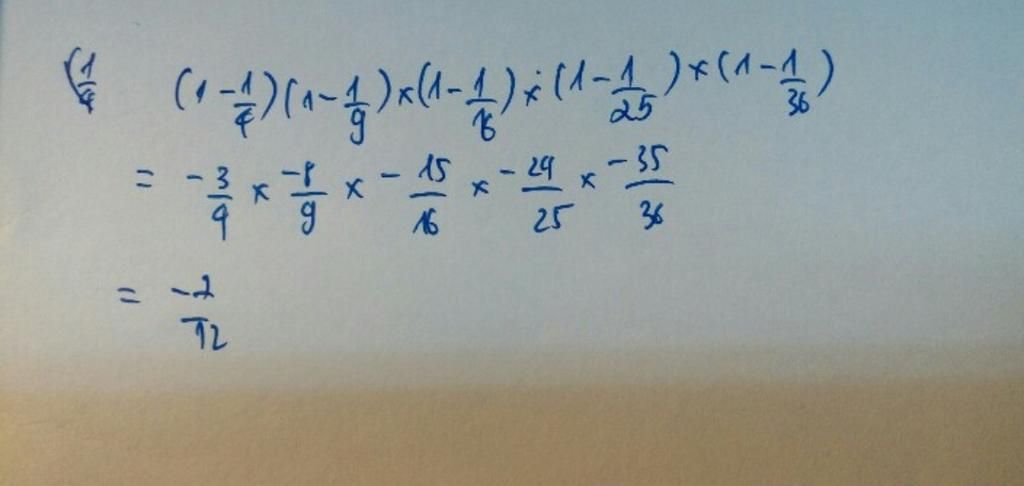 (1/4 (1-1/4)(1-1/9)×(1-1/16)×(1-1/25)×(1-1/36)
= -3/4 × -8/9 × -15/16 × -24/25 × -35/36
= -7/12